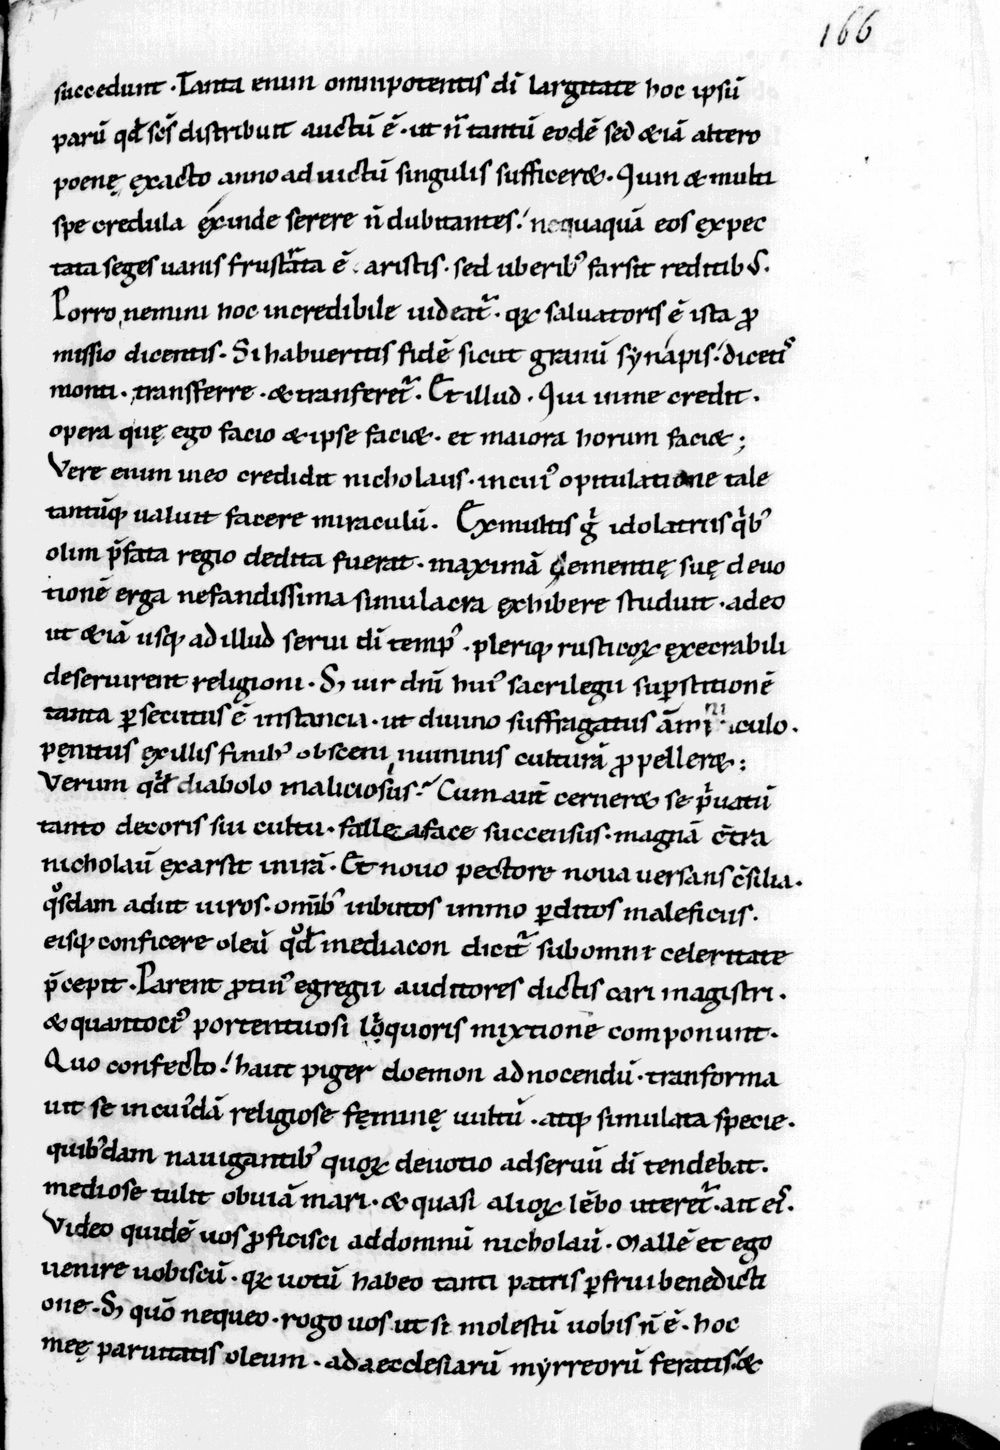 166
succedunt · Tanta enim omnipotentis dī largitate hoc ipsū
parū qđ scs̄ distribuit auctū ē · ut n̄ tantū eodē sed &iā altero
poenę exacto anno ad uictū singulis sufficer& · Quin & multi
spe credula exinde serere n̄ dubitantes ! nequaquā eos ęxpec
tata seges uanis frustᷓta ē · aristis · sed uberibꝰ farsit redditibꝰ ·
Porro nemini hoc incredibile uideatᷣ · qꝛ saluatoris ē ista ꝓ
missio dicentis · Si habueritis fidē sicut granū synapis ! dicetiꝰ
monti · transferre · & tranferetᷣ · Et illud · Qui in me credit ·
opera quę ego facio & ipse faci& · et maiora horum faci& ;
Vere enim in eo credidit nicholaus · in cuiꝰ opitulatione tale
tantūqꝫ ualuit facere miraculū · Ex multis gͥ idolatriis qͥbꝰ
olim p̄fata regio dedita fuerat · maximā clementię suę deuo
tionē erga nefandissima simulacra ęxhibere studuit · adeo
ut &iā usqꝫ ad illud serui dī tempꝰ · pleriqꝫ rusticoꝝ ęxecrabili
deseruirent religioni · Sꝫ uir dnī huiꝰ sacrilegii suꝑstitionē
tanta ꝑsecutus ē instancia · ut diuino suffragatus āminiculo ·
pęnitus ęx illis finibꝰ obsceni numinis culturā ꝓpeller& ;
Verum qđ diabolo maliciosius ? Cum aut̄ cerner& se pͥuatū
tanto decoris sui cultu · fallea face succensus · magnā c̄tra
nicholaū ęxarsit in irā · Et nouo pectore noua uersans c̄silia ·
qͦsdam adiit uiros · om̄ibꝰ inbutos immo ꝑditos maleficiis ·
eisqꝫ conficere oleū qđ mediacon dicitᷣ sub omni celeritate
p̄cepit · Parent ꝓtinꝰ egregii auditores dictis cari magistri ·
& quantociꝰ portentuosi lͥquoris mixtionē componunt ·
Quo confecto ! haut piger doemon ad nocendū · tranforma
uit se in cuiꝰdā religiose fęminę uultū · atqꝫ simulata specie ·
quibꝰdam nauigantibꝰ quoꝝ deuotio ad seruū dī tendebat ·
mediose tulit obuiā mari · & quasi alioꝝ lēbo uteretᷣ · ait eiꝰ ·
Video quidē uos ꝓficisci ad domnū nicholaū · Mallē et ego
uenire uobiscū · qꝛ uotū habeo tanti patris ꝑfrui benedicti
one · Sꝫ quō nequeo · rogo uos · ut si molestū uobis n̄ ē · hoc
meę paruitatis oleum · ad aecclesiarū myrreorū feratis · &